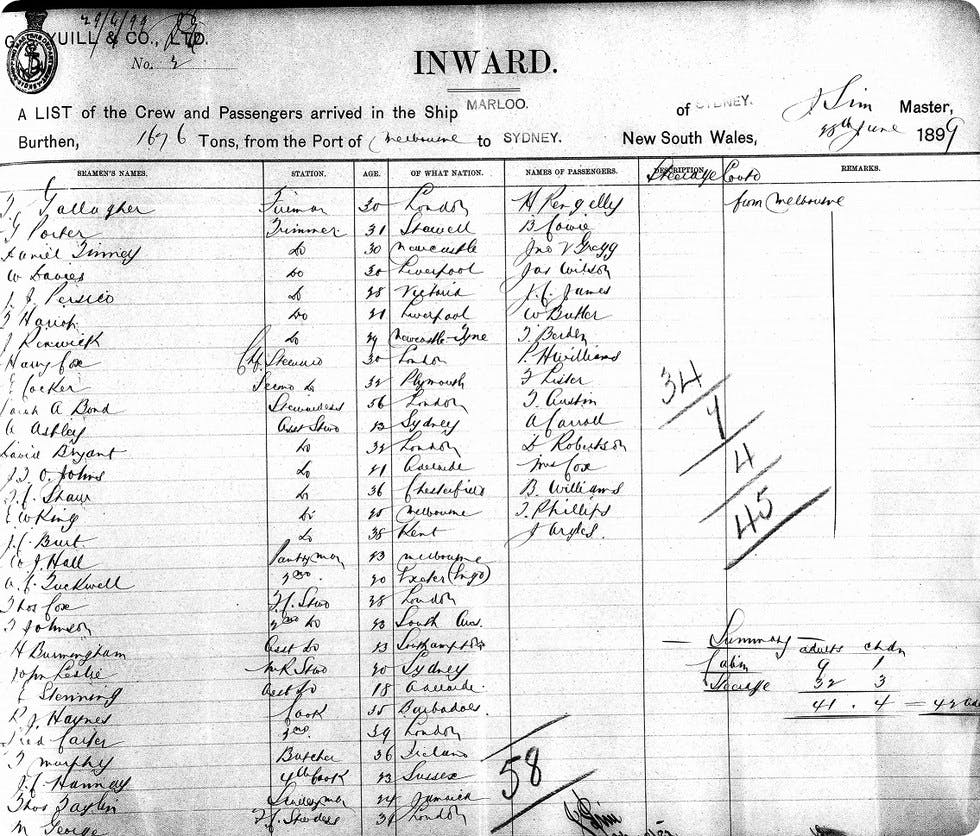 29/6/99
G. S. YUILL & CO., LTD.
No. 2
INWARD.
A LIST of the Crew and Passengers arrived in the Ship MARLOO. of SYDNEY. J Sim Master,
Burthen, 1676 Tons, from the Port of Melbourne to SYDNEY. New South Wales, 28th June 1899
SEAMEN'S NAMES. STATION. AGE. OF WHAT NATION. NAMES OF PASSENGERS. DESCRIPTION. REMARKS.
Steerage Contd
Gallagher Fireman 30 London H Pengelly from Melbourne
Porter Trimmer 31 Stawell B Cowie
Daniel Finney Do 30 Newcastle Jno V Gregg
W Davies Do 30 Liverpool Jas Wilson
J. Persico Do 28 Victoria J. C. James
Do 21 Liverpool W Butler
J Renwick Do 29 Newcastle-Tyne
Harry Cox Ch. Steward 30 London P. H Williams
Cocker Secnd Do 32 Plymouth F Lister 34
Sarah A Bond Stewardess 36 London T. Austin
A Ashley Asst Stwd 23 Sydney A Carroll 7
David Bryant Do 32 London D Robertson
J. J. O. Johns Do 21 Adelaide Mrs Cox 4
Shaw Do 36 Chesterfield B. Williams
E W King Do 25 Melbourne J. Phillips 45
J. C. Burt Do 35 Kent J Argles.
J. Hall Pantryman 23 Melbourne
Tuckwell 2nd 20 Exeter (Eng)
Thos Cox F.C. Stwd 28 London
J Johnson 2nd Do 23 South Aus.
H Burmingham Asst Do 23 Southampton Summary
John Leslie M R Stwd 20 Sydney adults chdn
E Stenning Asst Do 18 Adelaide Cabin 9 1
J. Haynes Cook 35 Barbadoes. Steerage 32 3
Fred Carter 2nd 39 London 41 . 4
Murphy Butcher 36 Ireland
J. C. Hannay 4th Cook 23 Sussex 58
Thos Taylor 24 Jamaica
M George London J Sim